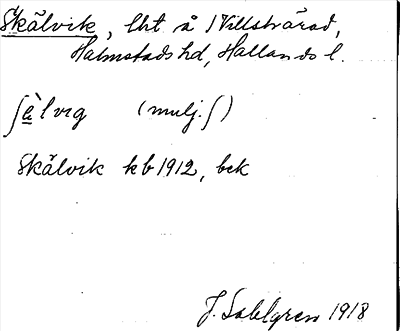 Skälvik, lht å S Villsträrad,
Halmstads hd, Hallands l.
ʃè̱lvıg (mulj. ʃ)
Skälvik kb 1912, bek
J. Sahlgren 1918